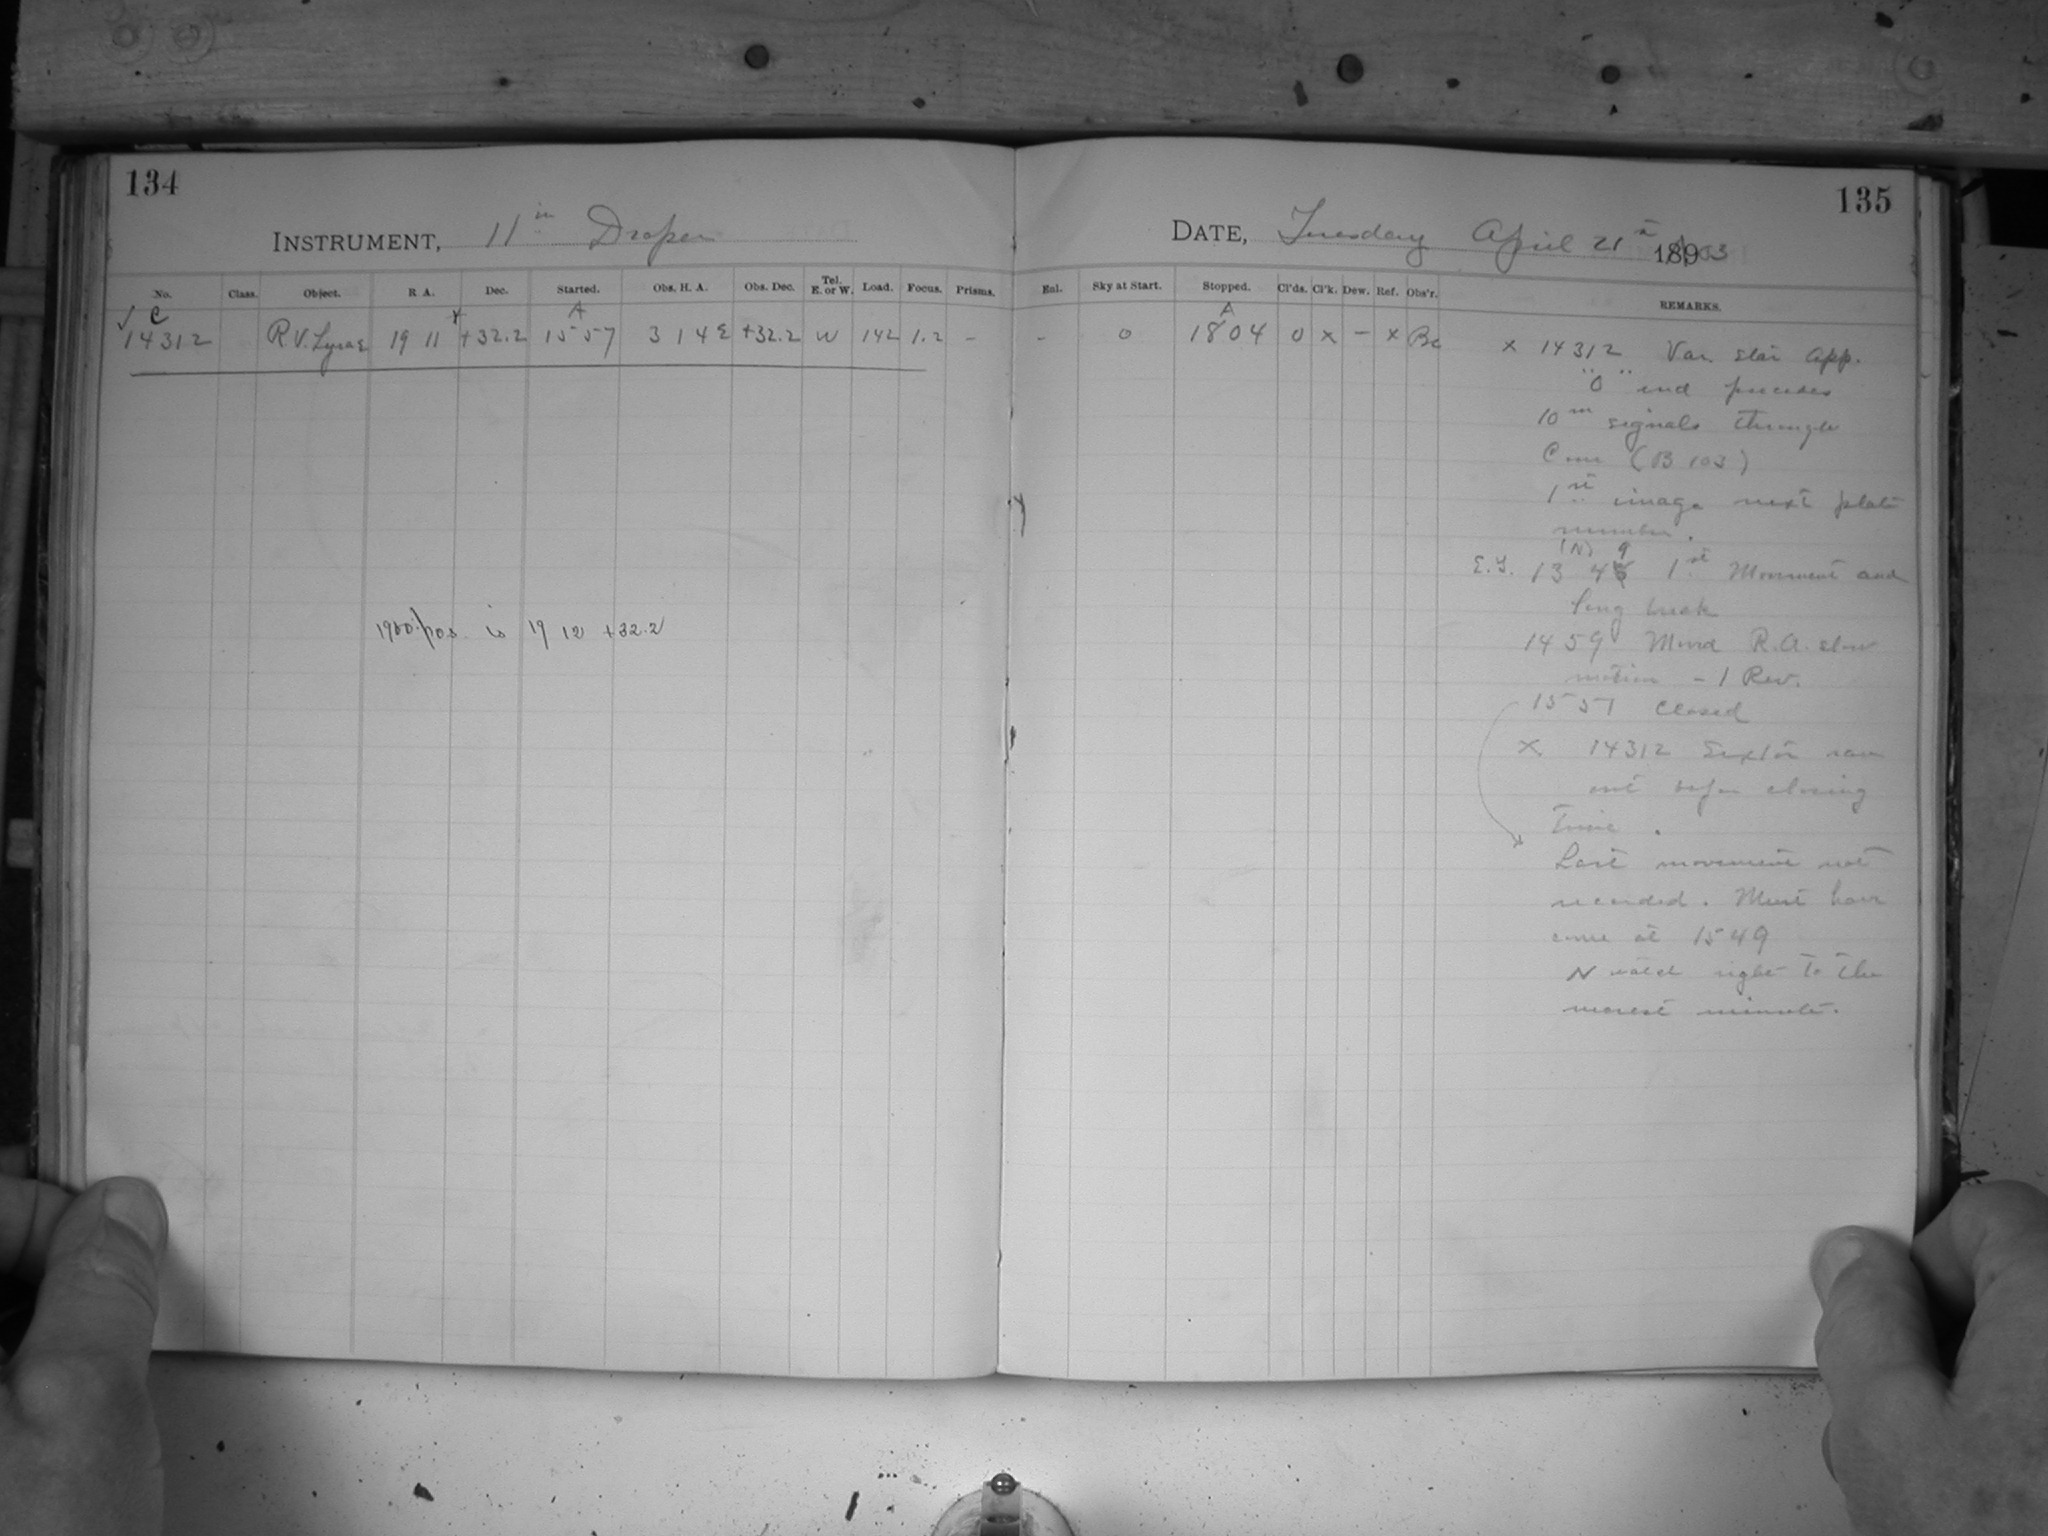 134
INSTRUMENT, 11 in Draper
No. Class. Object. R A. Dec. Started. Obs. H. A. Obs. Dec. Tel. E. or W. Load. Focus. Prisms.
√ C A
14312 R V. Lyrae 19 11 +32.2 15 57 3 14 E +32.2 W 142 1.2 -
1900 pos. is 19 12 +32.2
135
DATE, Tuesday April 21 1903
Enl. Sky at Start. Stopped. Cl'ds. Cl'k. Dew. Ref. Obs'r. REMARKS.
A
- 0 18 04 0 x - x Bc
x 14312 Var. star App.
"0" end precedes
10 m signals through
Cone (B 103)
1st image next plate
number.
(N) 9
E.S. 13 4 1st Movement and
long break
14 59 Moved R.A. slow
motion - 1 Rev.
15 57 Closed
x 14312 Sextor ran
out before closing
Time.
Last movement not
recorded. Must have
come at 15 49
N watch right to the
nearest minute.